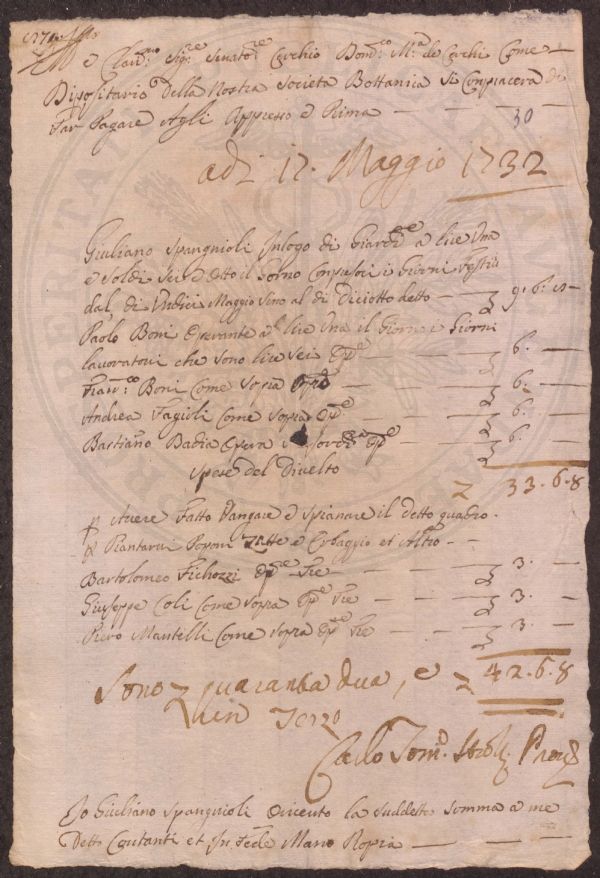 e Clar:mo Sig:re Senato:re Cerchio Dom:co M:a de Cerchi Come
Dipositario Della Nostra Societa Bottanica Si Compiacera di
Far Pagare Agli Appresso e Prima — — — 30
adi 17. Maggio 1732
Giuliano Spangnioli In logo di Giard:re a lire Una
e Soldi Sei e detto il Giorno Compresoci i Giorni Festivi
dal di Undici Maggio Sino al di Diciotto detto — 9. 6. 8
Paolo Boni Operante a lire Una il Giorno i Giorni
lavorativi che sono lire Sei Op:e — 6. —
Fran:co Boni Come Sopra Op:e — 6. —
Andrea Fagioli Come Sopra Op:e — 6. —
Bastiano Badia Opera Op:e — 6. —
Spese del Divelto
33. 6. 8
p Avere Fatto Vangare e Spianare il detto quadro.
& Piantarvi Poponi Zatte e Erbaggio et Altro —
Bartolomeo Fichozzi Op:e Tre — 3. —
Giuseppe Coli Come Sopra Op:e Tre — 3. —
Piero Mantelli Come Sopra Op:e Tre — 3. —
42. 6. 8
Sono quaranta dua, e
un Terzo
Carlo Tom:o
Io Giuliano Spangnioli Riceuto la Suddetta Somma a me
Detto Contanti et In Fede Mano Propia — — —